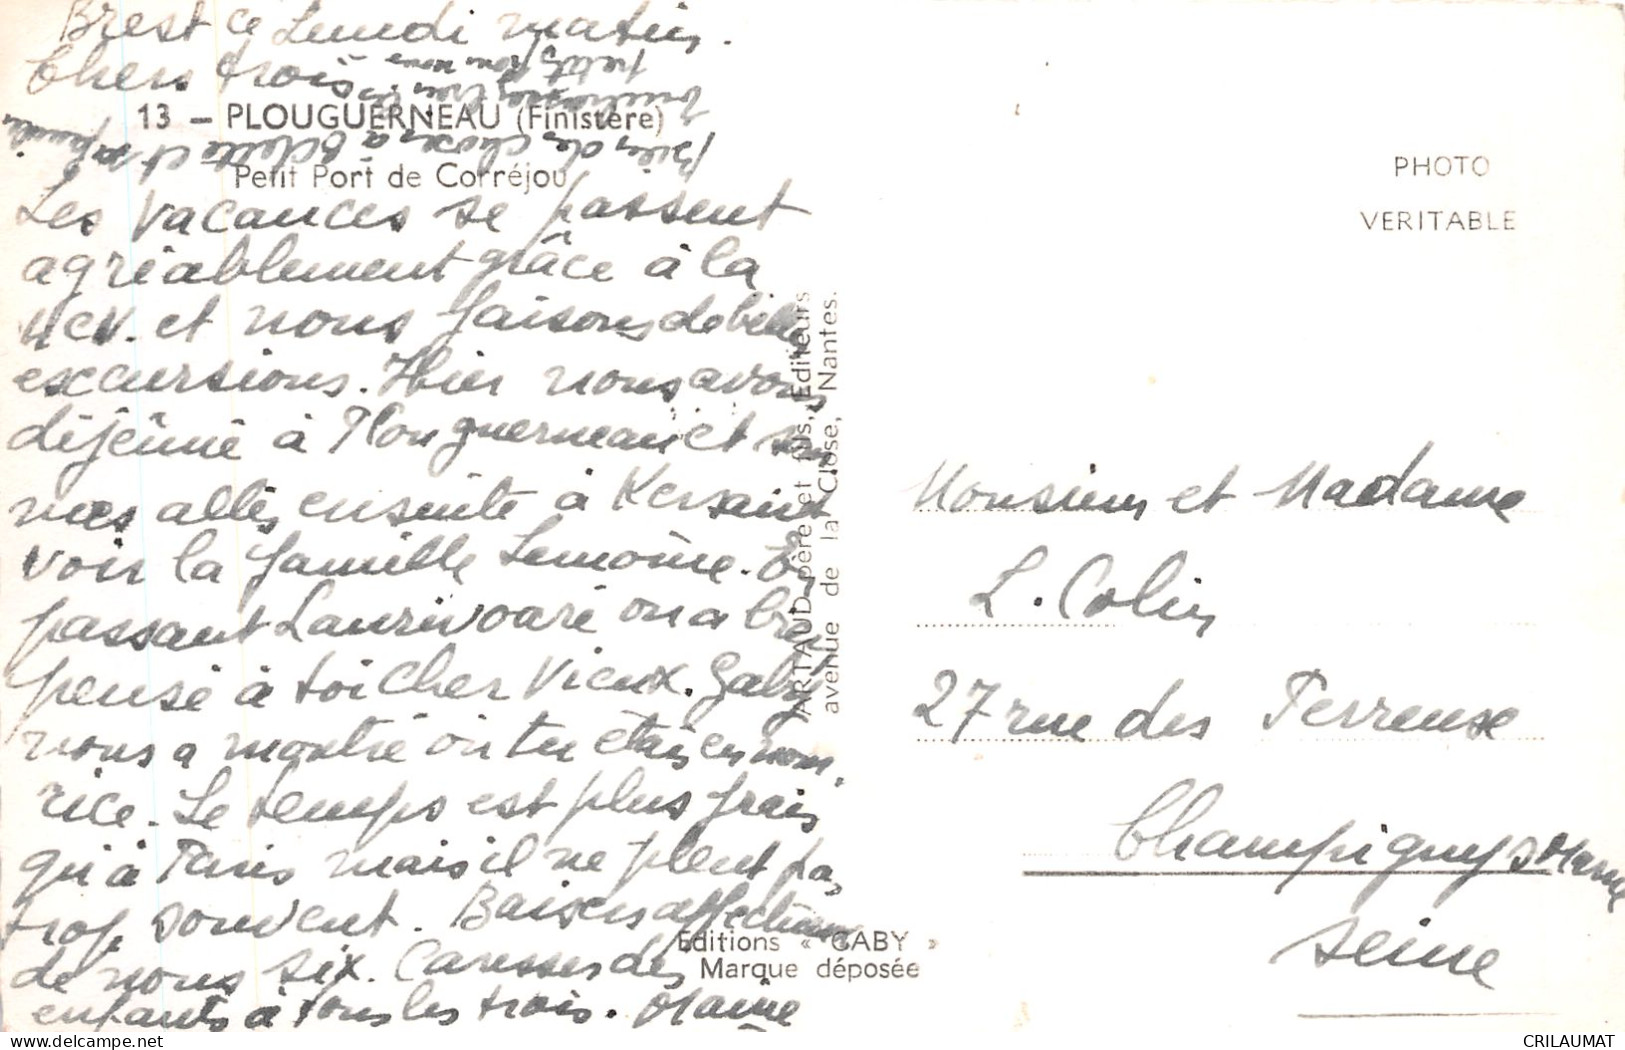 Brest ce Lundi matin.
Chers trois
13 – PLOUGUERNEAU (Finistère)
Petit Port de Corréjou
Les vacances se passent
agréablement grâce à la
4cv. et nous faisons de belles
excursions. Hier nous avons
déjeûné à Plouguerneau et som
mes allés ensuite à Kersaint
voir la famille Lemoine. En
passant Lanrivoaré on a bien
pensé à toi cher Vieux. Gaby
nous a montré où tu étais en nour
rice. Le temps est plus frais
qu'à Paris mais il ne pleut pas
trop souvent. Baisers affectueux
de nous six. Caresses des
enfants à tous les trois.
bien des choses à Odette et sa famille
petits pour nous
ARTAUD père et fils, Editeurs
avenue de la Close, Nantes.
Editions « GABY »
Marque déposée
PHOTO
VERITABLE
Monsieur et Madame
L. Colin
27 rue des Perreuse
Champigny s Marne
Seine
CRILAUMAT